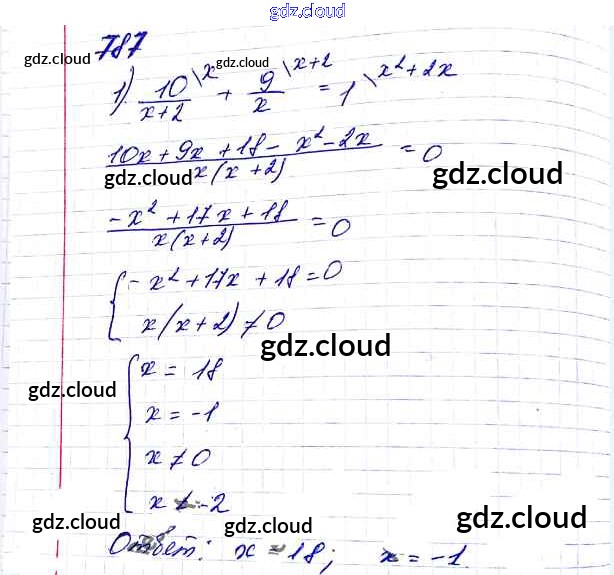 gdz.cloud
787
gdz.cloud gdz.cloud
1). 10/(x+2) \x + 9/x \x+2 = 1 \x²+2x
(10x + 9x + 18 - x² - 2x)/(x(x+2)) = 0
gdz.cloud gdz.cloud
(-x² + 17x + 18)/(x(x+2)) = 0
{ -x² + 17x + 18 = 0
x(x+2) ≠ 0
gdz.cloud
{ x = 18
gdz.cloud
x = -1
x ≠ 0
x ≠ -2
gdz.cloud gdz.cloud gdz.cloud
Ответ: x = 18; x = -1.